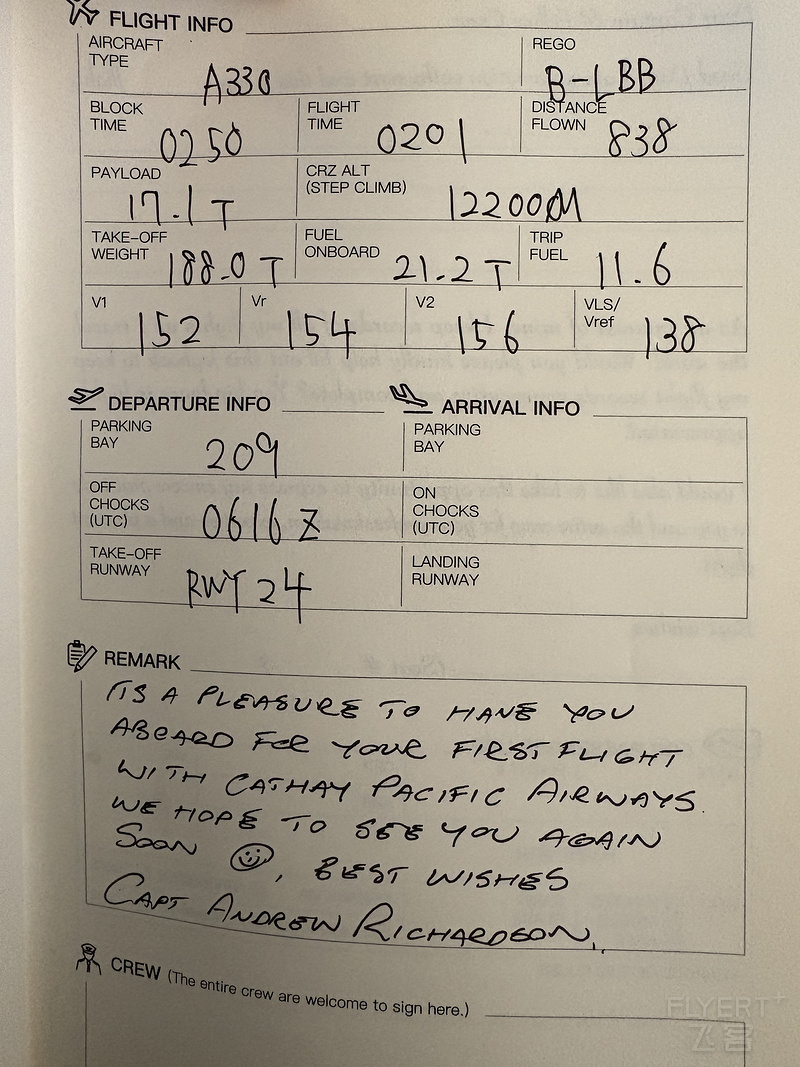 FLIGHT INFO
AIRCRAFT TYPE A330
REGO B-LBB
BLOCK TIME 0250
FLIGHT TIME 0201
DISTANCE FLOWN 838
PAYLOAD 17.1 T
CRZ ALT (STEP CLIMB) 12200M
TAKE-OFF WEIGHT 188.0 T
FUEL ONBOARD 21.2 T
TRIP FUEL 11.6
V1 152
Vr 154
V2 156
VLS/Vref 138
DEPARTURE INFO
ARRIVAL INFO
PARKING BAY 209
PARKING BAY
OFF CHOCKS (UTC) 0616 Z
ON CHOCKS (UTC)
TAKE-OFF RUNWAY RWY 24
LANDING RUNWAY
REMARK
ITS A PLEASURE TO HAVE YOU
ABOARD FOR YOUR FIRST FLIGHT
WITH CATHAY PACIFIC AIRWAYS.
WE HOPE TO SEE YOU AGAIN
SOON ☺, BEST WISHES
CAPT ANDREW RICHARDSON.
CREW (The entire crew are welcome to sign here.)
FLYERT+
飞客